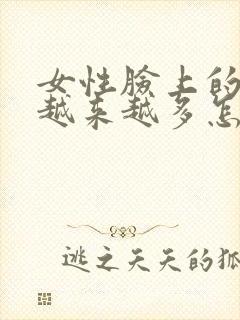 女性脸上的
越来越多怎
逃之夭夭的狐